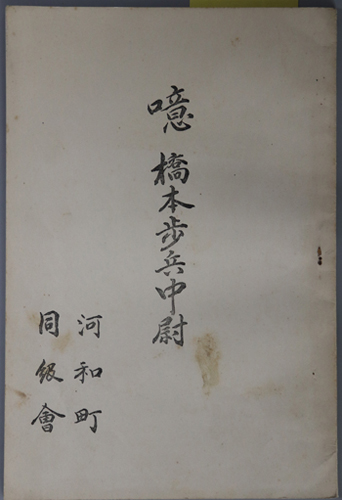 噫 橋本歩兵中尉
河和町
同級會